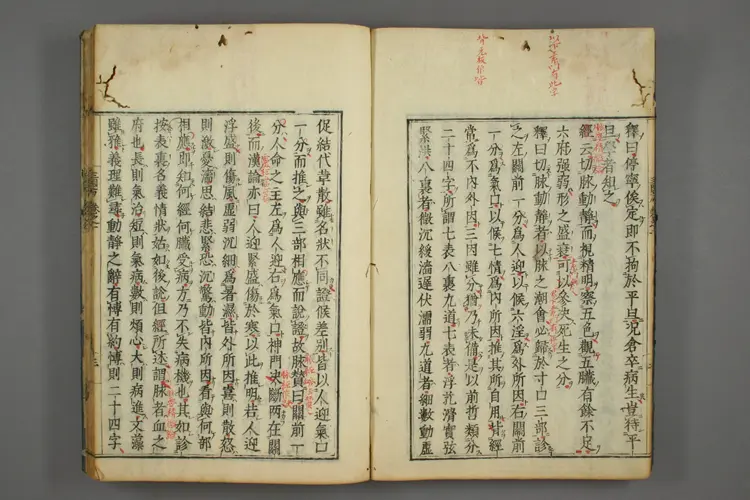 釋曰停寧俟定即不拘於平旦況倉卒病生豈待平
旦學者組之
經云切脉動靜而視精明察五色觀五臓有餘不足
六府強弱形之盛衰可以參決死生之分
釋曰切脉動靜者以脉之潮會必歸於寸口三部診
之左關前一分爲人迎以候六淫爲外所因右關前
一分爲氣口以候七情爲内所因推其所自用背經
常爲不内外因三因雖分猶乃未備是以前哲類分
二十四字所謂七表八裏九道七表者浮芤滑實弦
緊洪八裏者微沉緩濇遲伏濡弱九道者細數動虚
促結代革散雖名狀不同證候差別皆以人迎氣口
一分而推之與三部相應而說證故脉賛曰關前一
分人命之主左爲人迎右爲氣口神門决斷兩在關
後而漢論亦曰人迎緊盛傷於寒以此推明若人迎
浮盛則傷風虚弱沉細爲暑濕皆外所因喜則散怒
則激憂濇思結悲緊恐沉驚動皆内所因看與何部
相應即知何經何臓受病方乃不失病機也其如診
按表裏名義情狀姑如後說但經所述謂脉者血之
府也長則氣治短則氣病數則煩心大則病進文藻
雖雅義理難尋動靜之辭有博有約博則二十四字